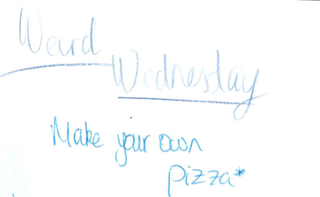 Weird
Wednesday
Make your own
pizza*